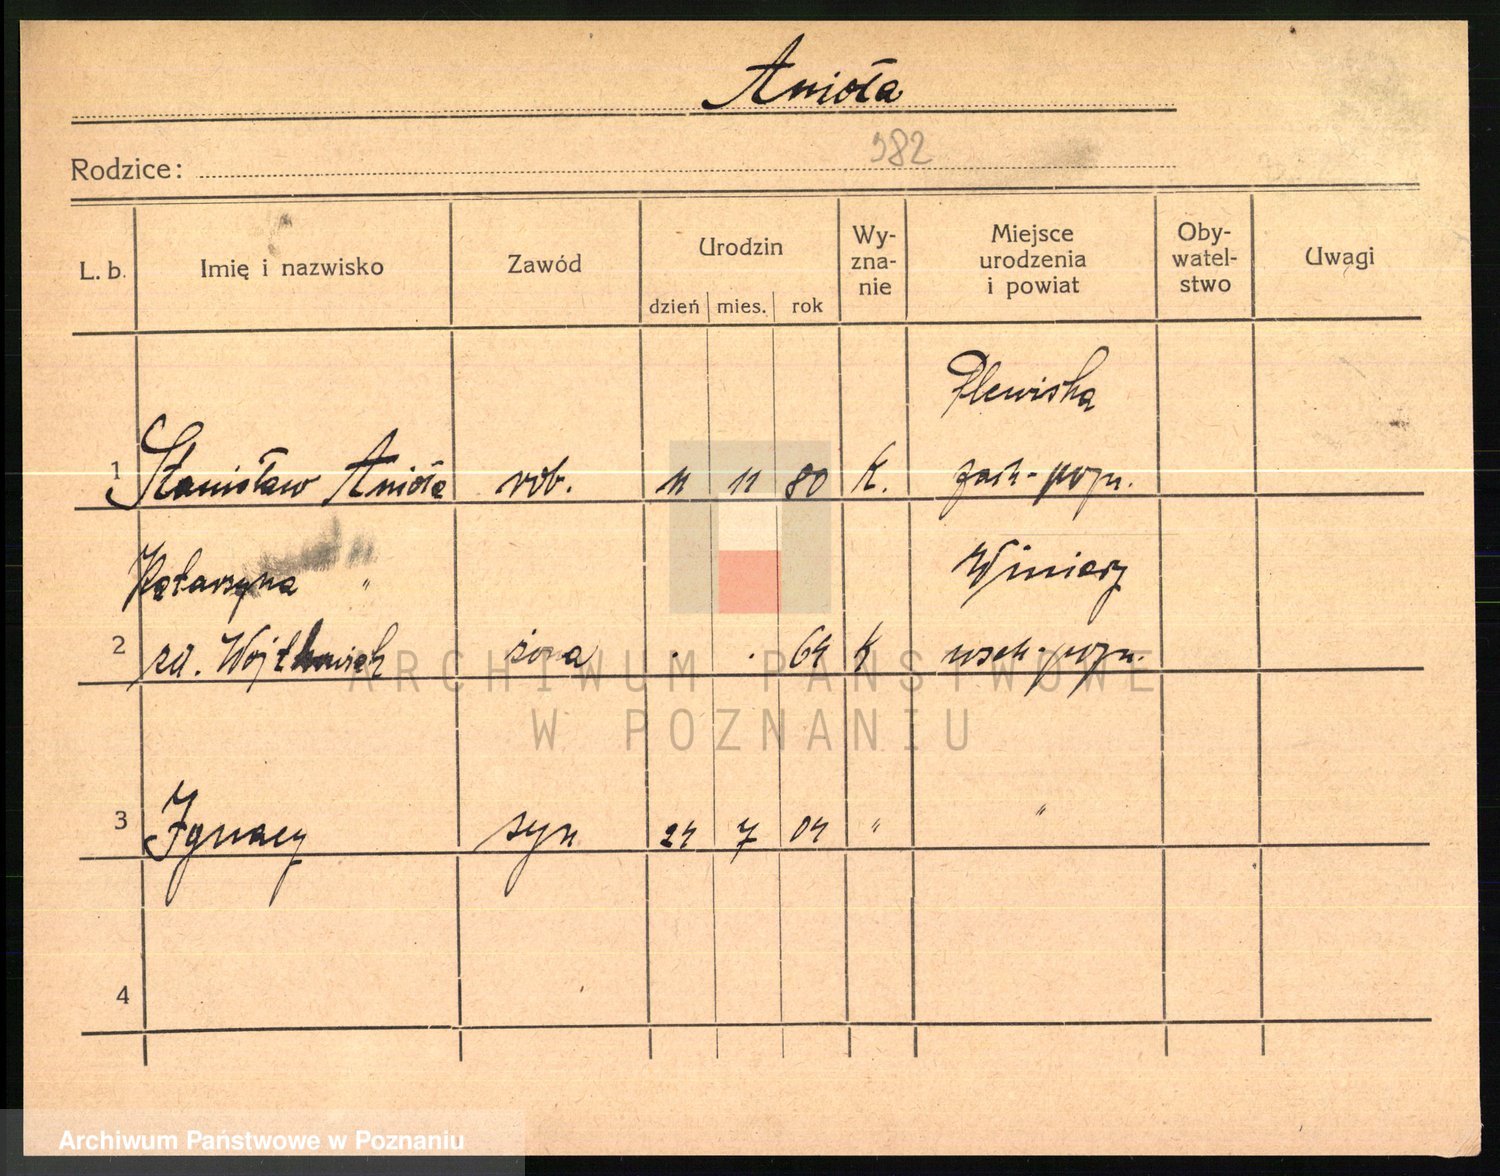 Anioła
982
Rodzice:
L. b. Imię i nazwisko Zawód Urodzin dzień mies. rok Wy-zna-nie Miejsce urodzenia i powiat Oby-watel-stwo Uwagi
Plewiska
1 Stanisław Anioła rob. 11 11 80 K. zach-pozn.
Katarzyna " Winiary
2 zd. żona . . 64 k wsch-pozn.
3 Ignacy syn 24 7 04 " "
4
ARCHIWUM PAŃSTWOWE
W POZNANIU
Archiwum Państwowe w Poznaniu